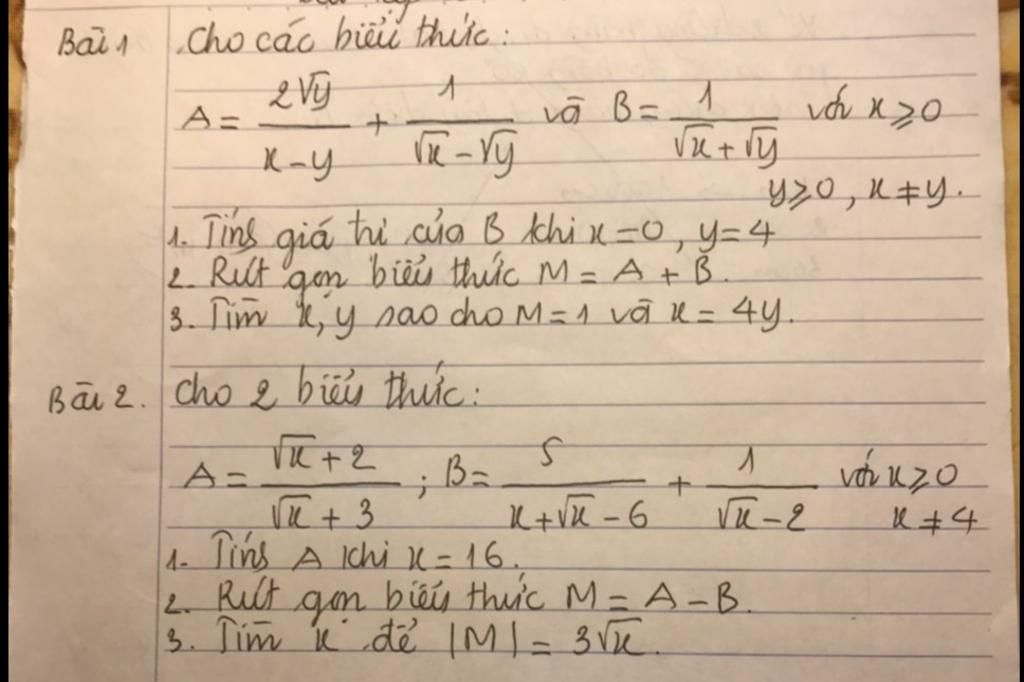 Bài 1 Cho các biểu thức:
A = 2√y / (x - y) + 1 / (√x - √y) và B = 1 / (√x + √y) với x ⩾ 0
y ⩾ 0, x ≠ y.
1. Tính giá trị của B khi x = 0, y = 4
2. Rút gọn biểu thức M = A + B.
3. Tìm x, y sao cho M = 1 và x = 4y.
Bài 2. Cho 2 biểu thức:
A = (√x + 2) / (√x + 3) ; B = 5 / (x + √x - 6) + 1 / (√x - 2) với x ⩾ 0
x ≠ 4
1. Tính A khi x = 16.
2. Rút gọn biểu thức M = A - B.
3. Tìm x để |M| = 3√x.